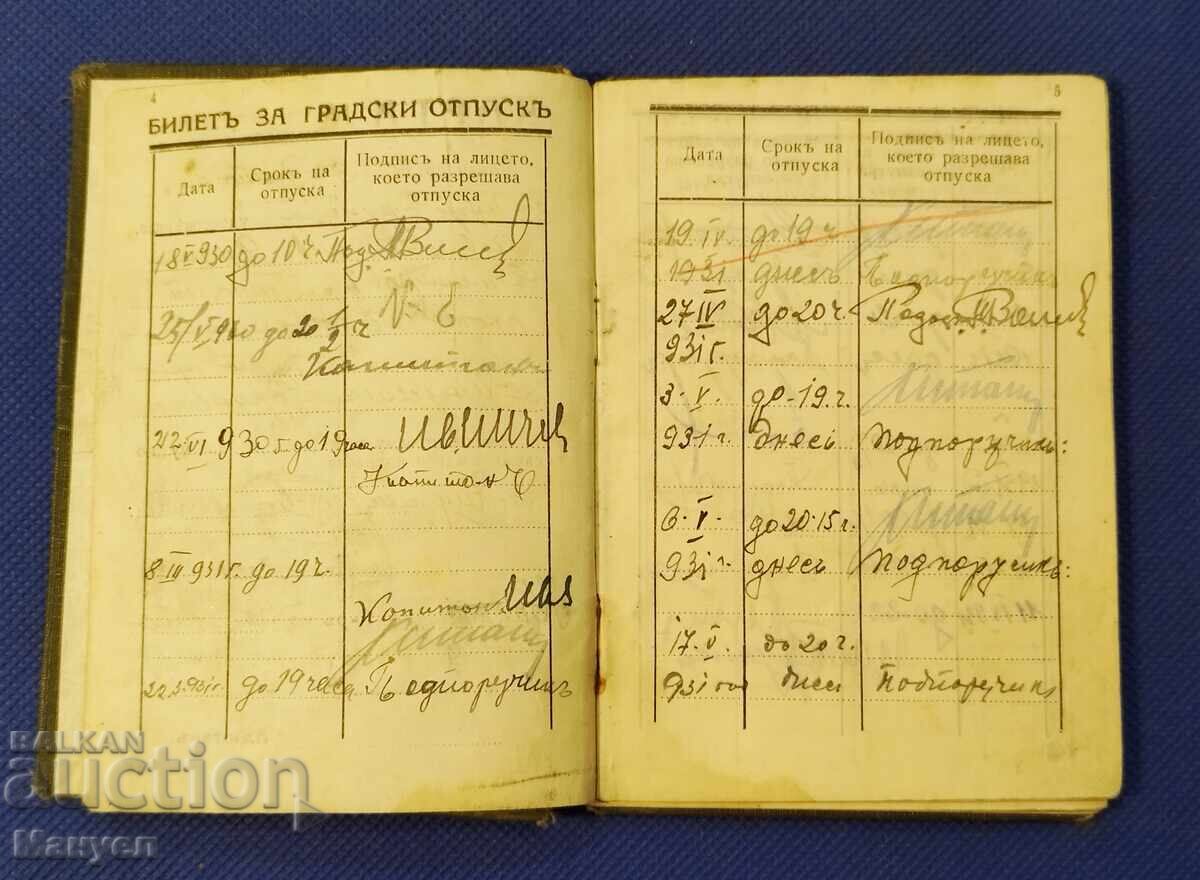 4
БИЛЕТЪ ЗА ГРАДСКИ ОТПУСКЪ
Дата
Срокъ на отпуска
Подписъ на лицето, което разрешава отпуска
18 V 930 до 10 ч. Под.
25/V 930 до 20 1/2 ч
Капитанъ
22. VI 930 г. до 19 часа
Капитанъ
8 III 931 г. до 19 ч.
Капитан
22.3.931 г. до 19 часа Подпоручикъ
5
Дата
Срокъ на отпуска
Подписъ на лицето, което разрешава отпуска
19 IV. до 19 ч.
1931 днесъ Подпоручикъ
27 IV до 20 ч. Подп.
931 г.
3. V. до 19. ч.
931 г. днесъ Подпоручикъ:
6. V до 20.15 г.
931 г. днесъ Подпоручикъ:
17. V. до 20 ч.
931 год днес Подпоручикъ
BALKAN
auction
Мануел